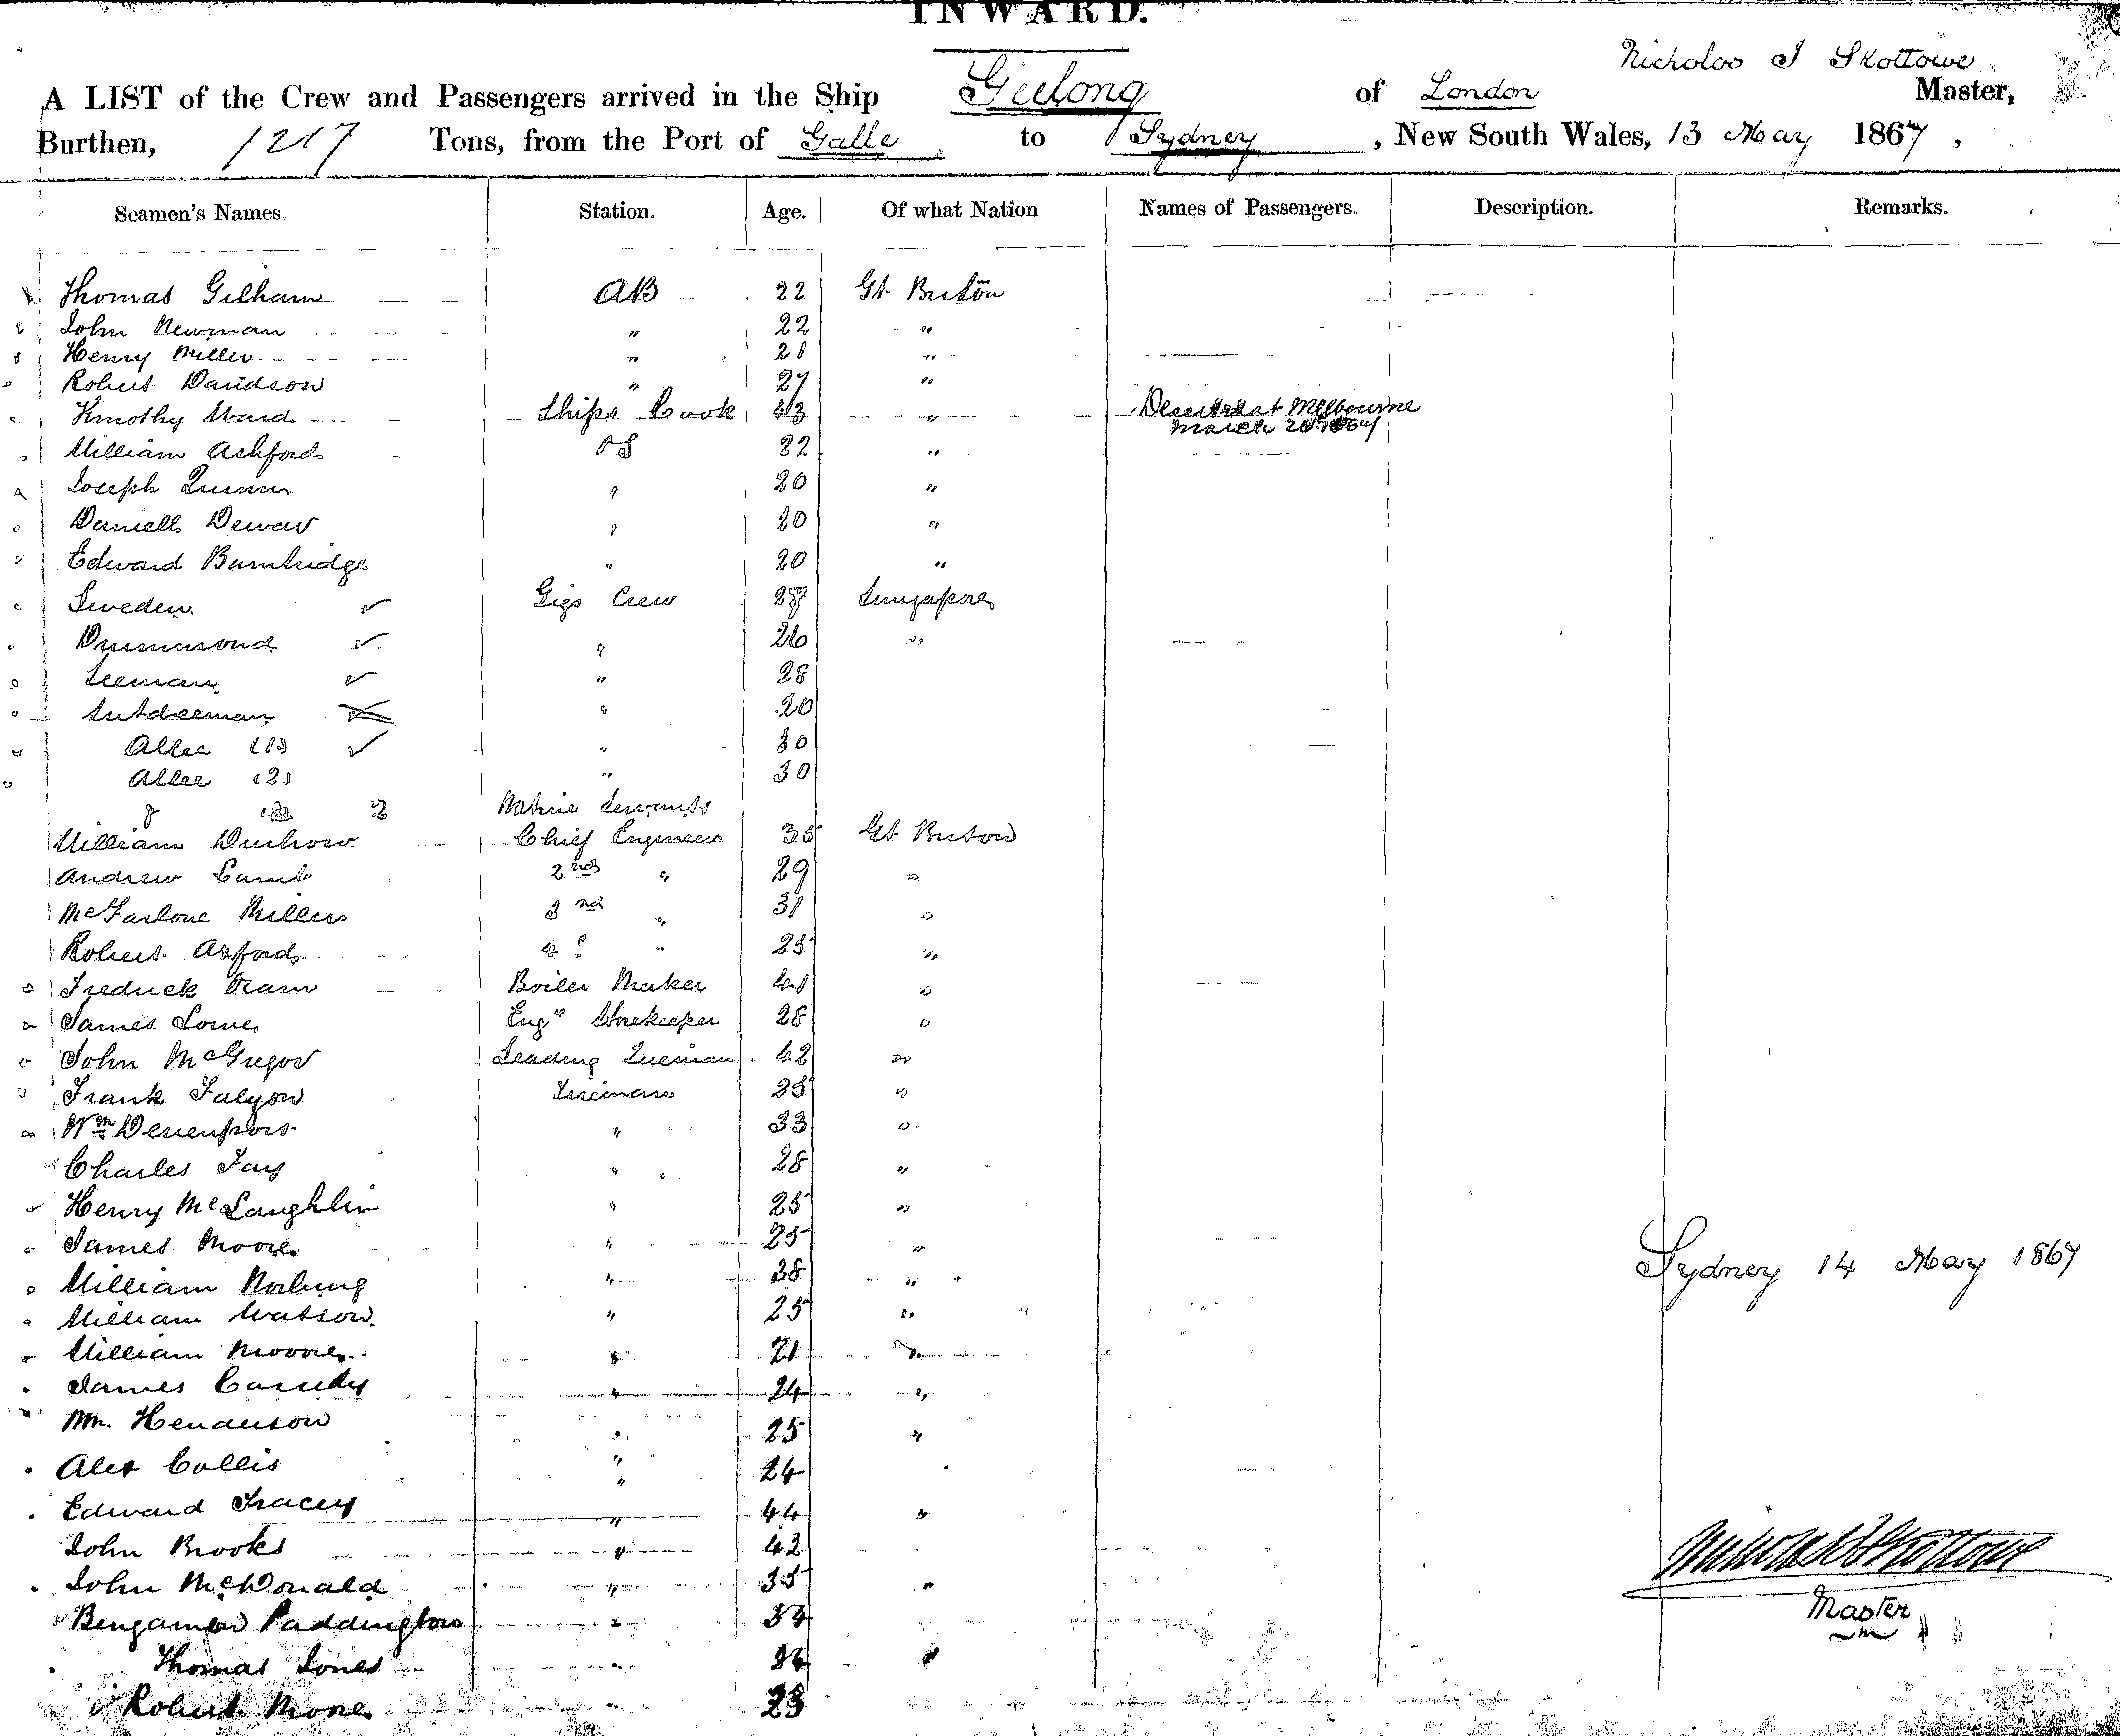 INWARD.
Nicholas J Skottowe
A LIST of the Crew and Passengers arrived in the Ship Geelong of London Master,
Burthen, 1217 Tons, from the Port of Galle to Sydney, New South Wales, 13 May 1867,
Seamen's Names. Station. Age. Of what Nation Names of Passengers. Description. Remarks.
Thomas Gilham AB 22 Gt. Britain
John Newman " 22 "
Henry Miller " "
Robert Davidson " 27 "
Timothy Ward Ships Cook 43 " Deserted at Melbourne
March 1867
William Ashford OS 22 "
Joseph " 20 "
Daniell Dewar " 20 "
Edward Bainbridge " 20 "
Sweden ✓ Gigs Crew Singapore
Drummond ✓ " 26 "
Leeman ✓ " 28
" 20
Allee (1) ✓ " 30
Allee (2) " 30
Native Servants
William Chief Engineer 35 Gt. Britain
Andrew 2nd " 29 "
McFarlane Miller 3rd " 31 "
Robert Axford 4 " 25 "
Fredrick Boiler Maker 41 "
James Engr Storekeeper 28 "
John McGregor Leading Fireman 42 "
Frank Falyon Fireman 35 "
Wm Devenport " 33 "
Charles Fay " 28 "
Henry McLaughlin " 25 "
James Moore " 25 "
Sydney 14 May 1867
William " 38 "
William Watson " 25 "
William Moore " 21 "
James Cassidy " 24 "
Wm. Henderson " 25 "
Alex Collis " 24
Edward Tracey " 44 "
John Brooks " 42
Nicholas J Skottowe
John McDonald " 35 "
Master
Bengamen Paddington " 34
Thomas Jones " "
Robert Moore " 23